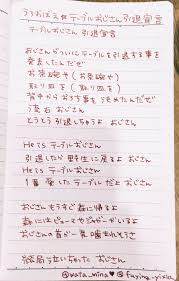 うろおぼえ テーブルおじさん引退宣言
テーブルおじさん 引退宣言
おじさんがついにテーブルを引退する事を
発表したんだぜ
お茶碗や(お茶碗や)
取り皿を(取り皿を)
背中からおろす事を決めたんだぜ
うだおおじさん
とうとう引退しちゃうよ おじさん
He is テーブルおじさん
引退したら 野生に戻るよ おじさん
He is テーブルおじさん
1番 愛した テーブルだよ おじさん
おじさんもうすぐ森に帰るよ
森にはピューマやジャガーがいるよ
おじさんの首が一気に噛まれそうさ
結局立ちいちゃった おじさん
@wata_mina♥ @fuying_yixia